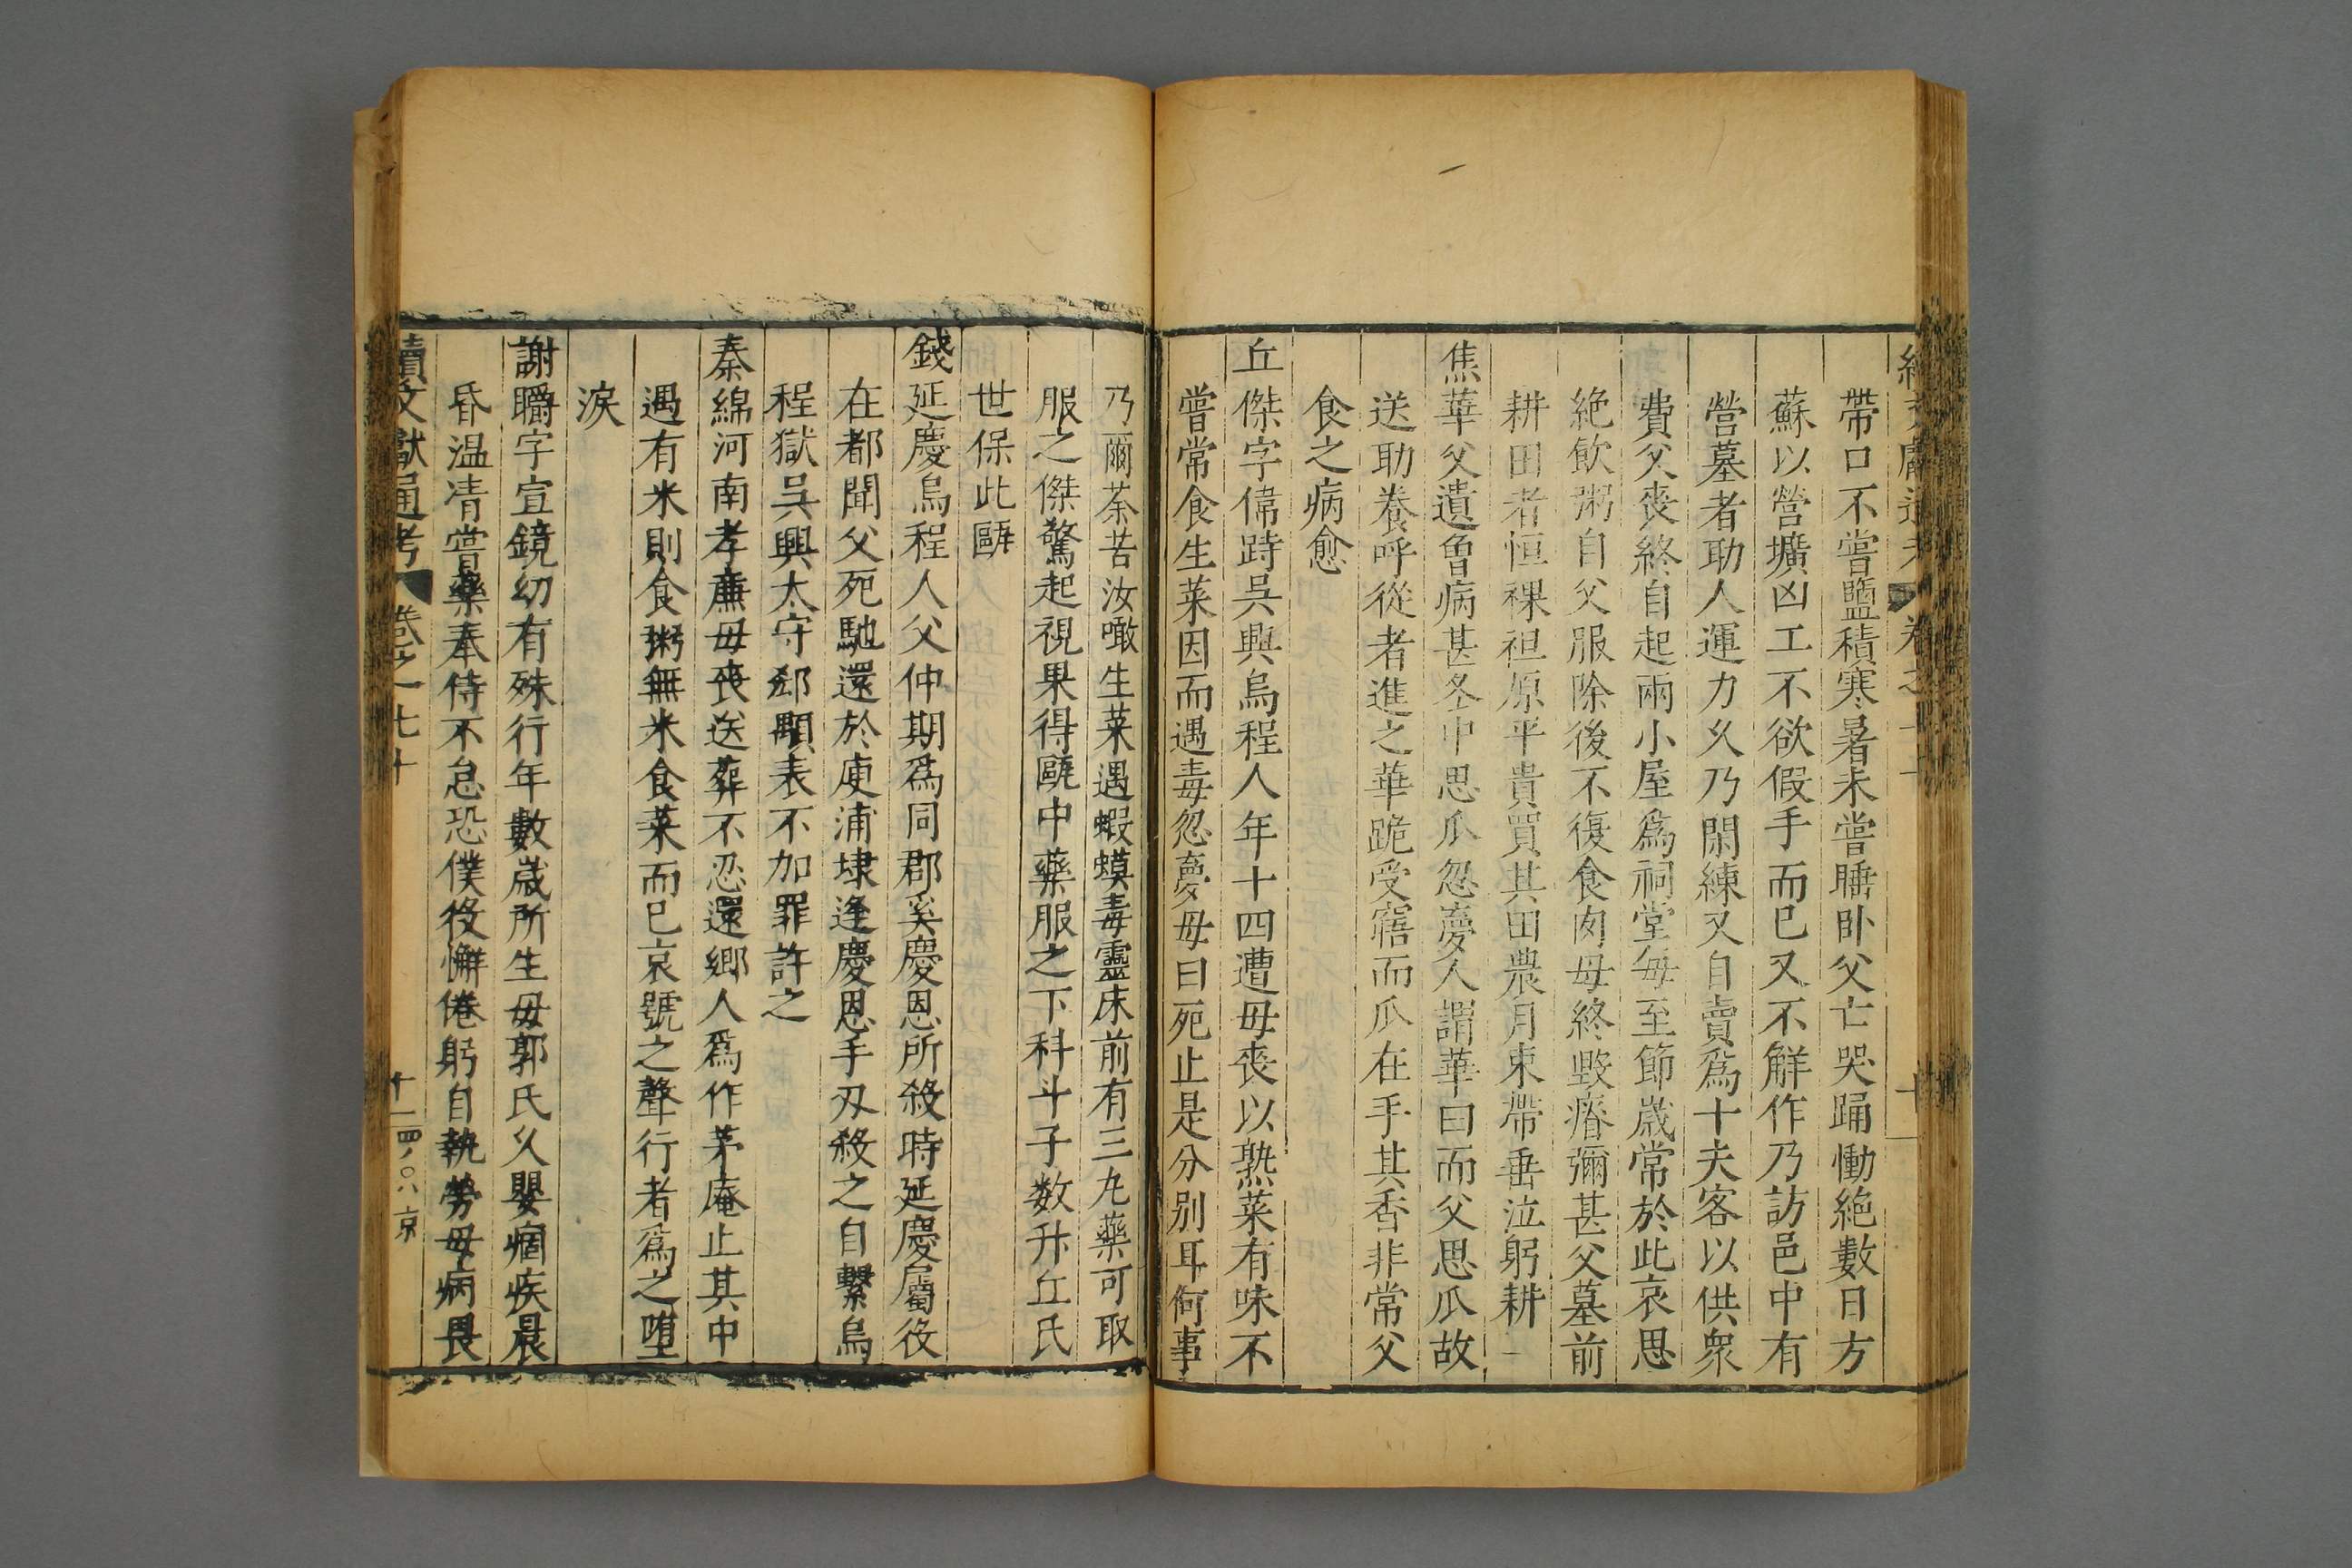 帶口不嘗鹽積寒暑未嘗睡卧父亡哭踊慟絶數日方
蘇以營壙凶工不欲假手而已又不觧作乃訪邑中有
營墓者助人運力乆乃閑練又自賣爲十夫客以供衆
費父丧終自起兩小屋爲祠堂每至節歲常於此哀思
絶飲粥自父服除後不復食肉母終毀瘠彌甚父墓前
耕田者恒裸袒原平貴買其田農月束帶垂泣躬耕
焦華父遺曾病甚冬中思瓜忽夢人謂華曰而父思瓜故
送助養呼從者進之華跪受寤而瓜在手其香非常父
食之病愈
丘傑字偉跱吳興烏程人年十四遭母丧以熟菜有味不
嘗常食生菜因而遇毒忽夢母曰死止是分别耳何事
乃爾荼苦汝噉生菜遇蝦蟆毒靈床前有三九藥可取
服之傑驚起視果得甌中藥服之下科斗子数升丘氏
世保此甌
錢延慶烏程人父仲期爲同郡奚慶恩所殺時延慶屬役
在都聞父死馳還於庱浦埭逢慶恩手刃殺之自繫烏
程獄吳興太守郄顒表不加罪許之
秦綿河南孝廉母丧送葬不忍還鄉人爲作茅庵止其中
遇有米則食粥無米食菜而已哀號之聲行者爲之墮
淚
謝𤅢字宣鏡幼有殊行年數歲所生母郭氏乆嬰痼疾晨
昏温凊嘗藥奉侍不怠恐僕役懈倦躬自執勞母病畏
續文獻通考 卷之一七十 十一 四〇八 京